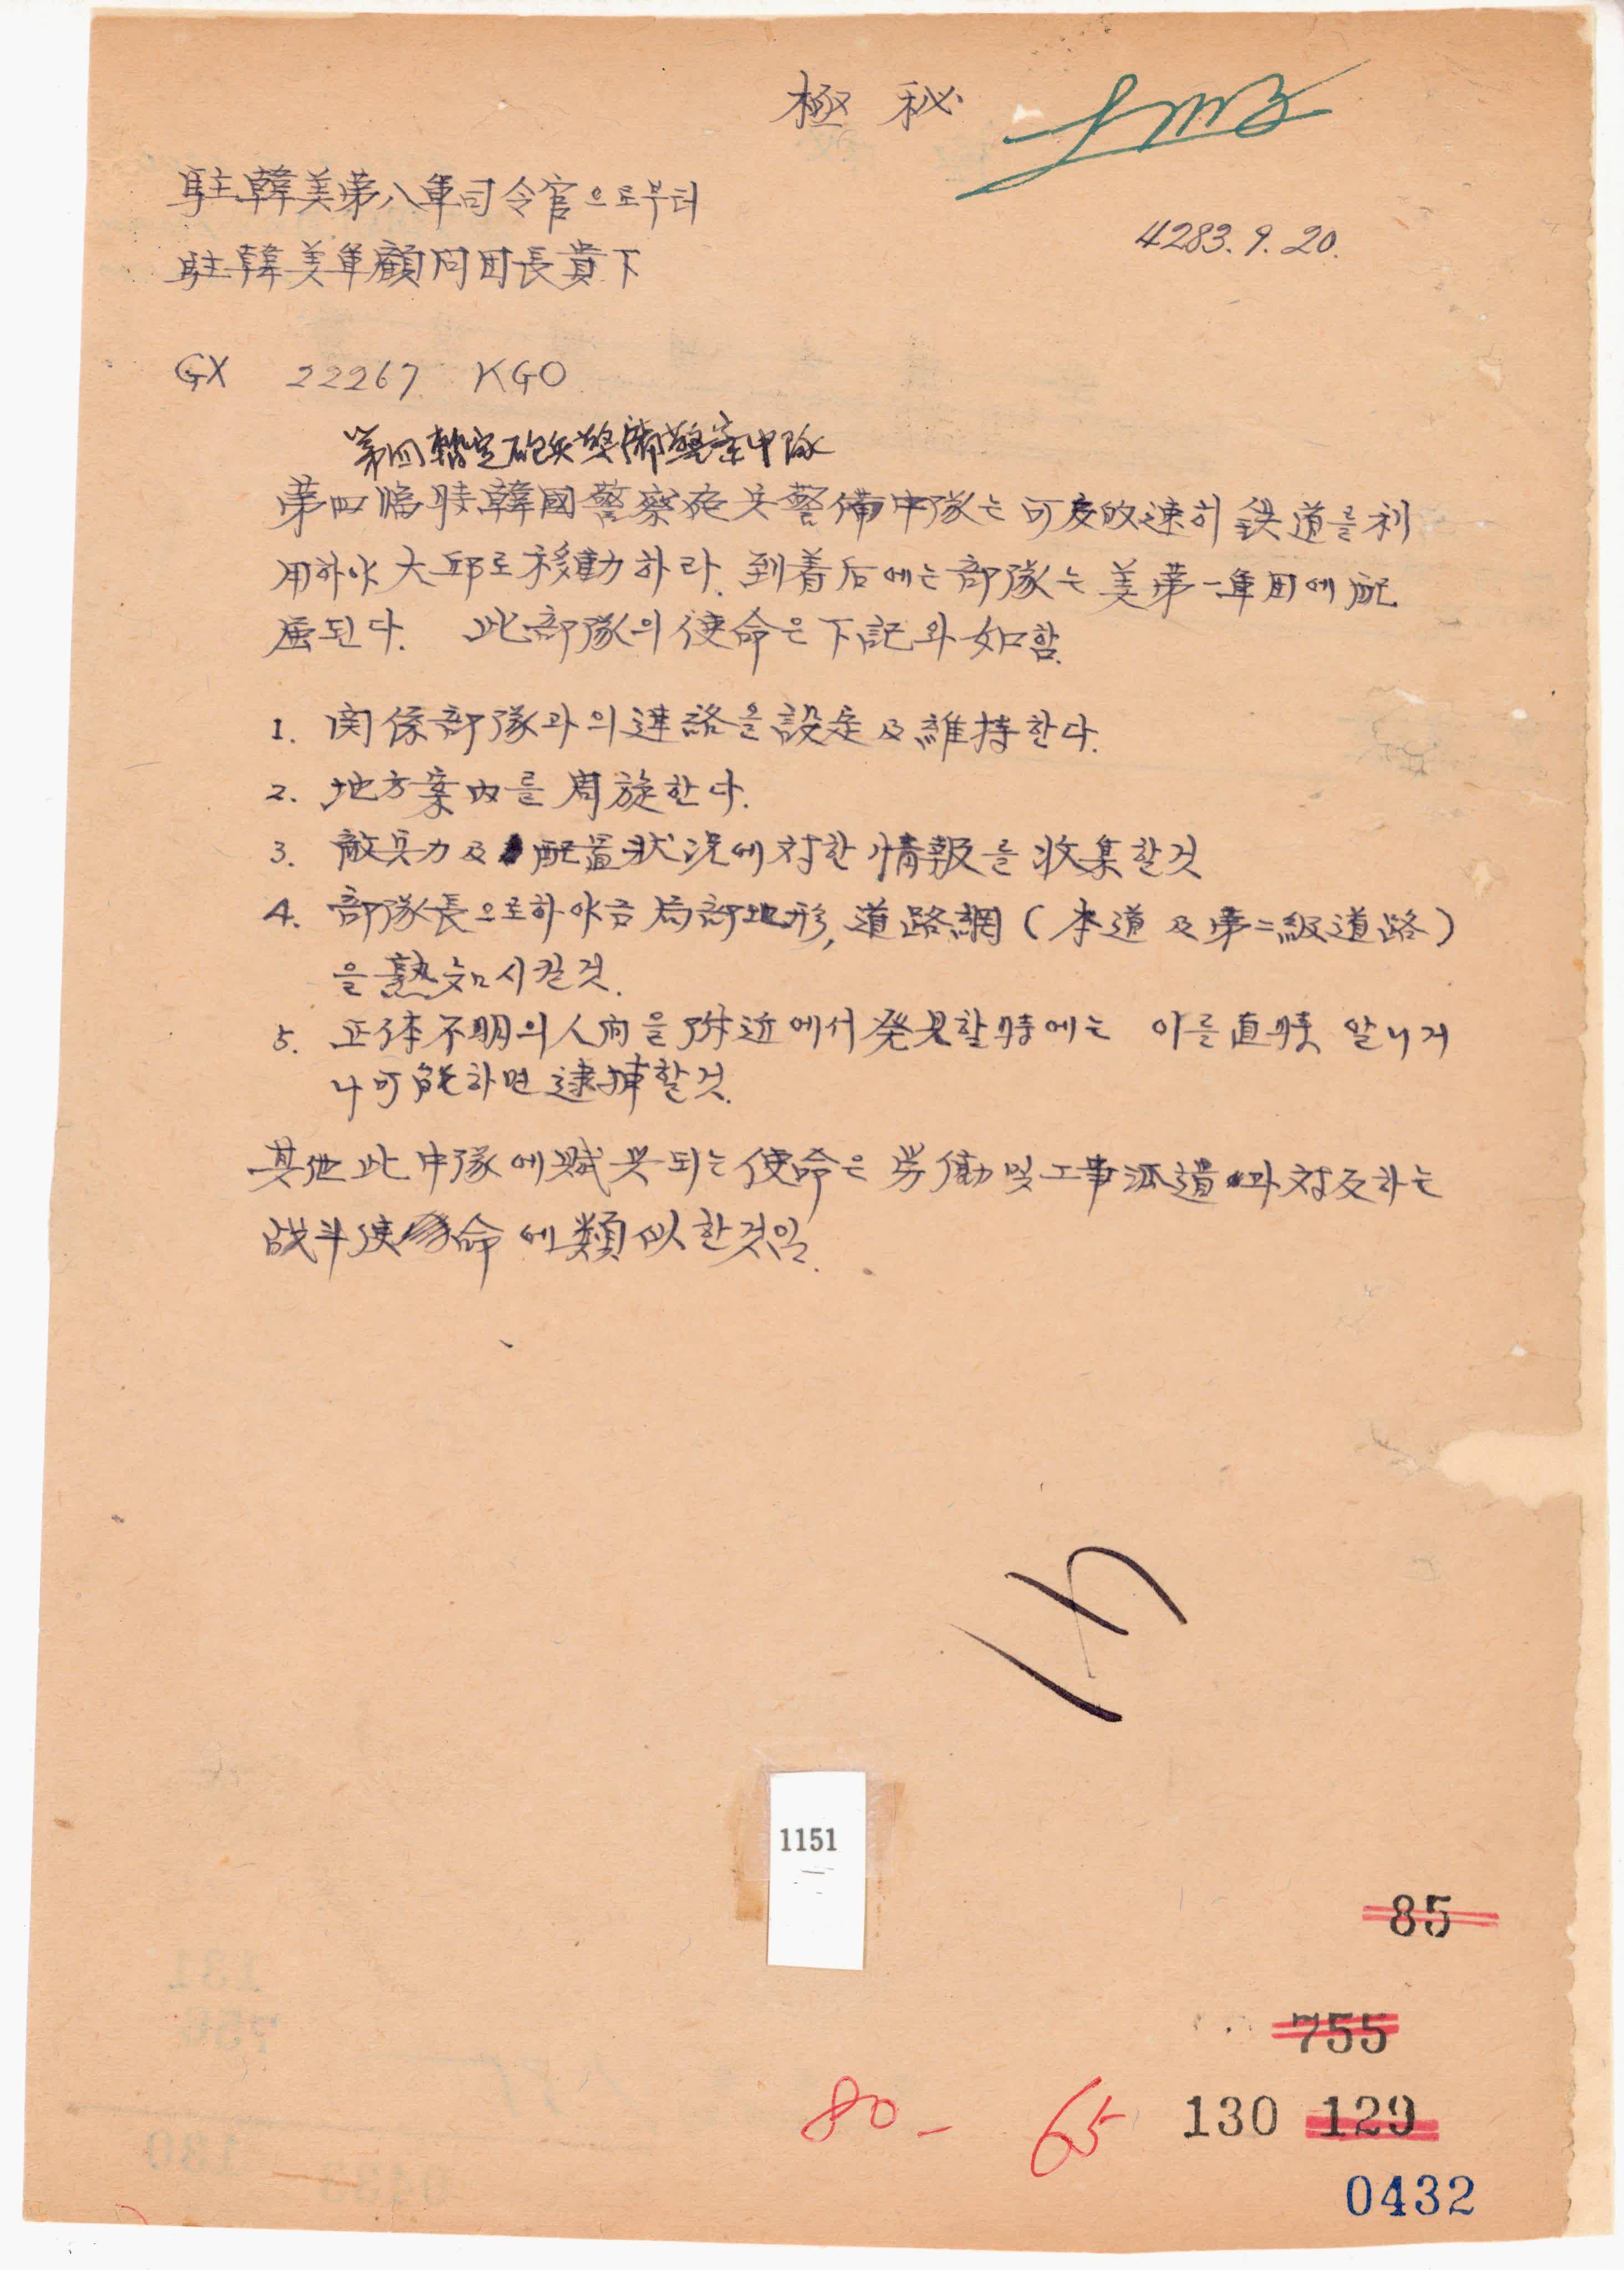 極秘
4283.9.20.
駐韓美第八軍司令官으로부터
駐韓美軍顧问団長貴下
GX 22267 KGO
第四暫定砲兵警備警察中隊
第四臨時韓國警察砲兵警備中隊는 可及的速히 鉄道를 利
用하야 大邱로 移動하라. 到着后에는 部隊는 美第一軍団에 配
属된다. 此部隊의 使命은 下記와 如함.
1. 関係部隊과의 連絡을 設定及維持한다.
2. 地方案内를 周旋한다.
3. 敵兵力及 配置状況에 対한 情報를 收集할것
4. 部隊長으로하야금 局部地形, 道路網(本道及第二級道路)
을 熟知시킬것.
5. 正体不明의 人间을 附近에서 発見할時에는 이를 直時 알니거
나 可能하면 逮捕할것.
其他此中隊에 賦与되는 使命은 労働및工事派遣과 対反하는
战斗使命에 類似한것임.
1151
85
755
80- 65 130 129
0432